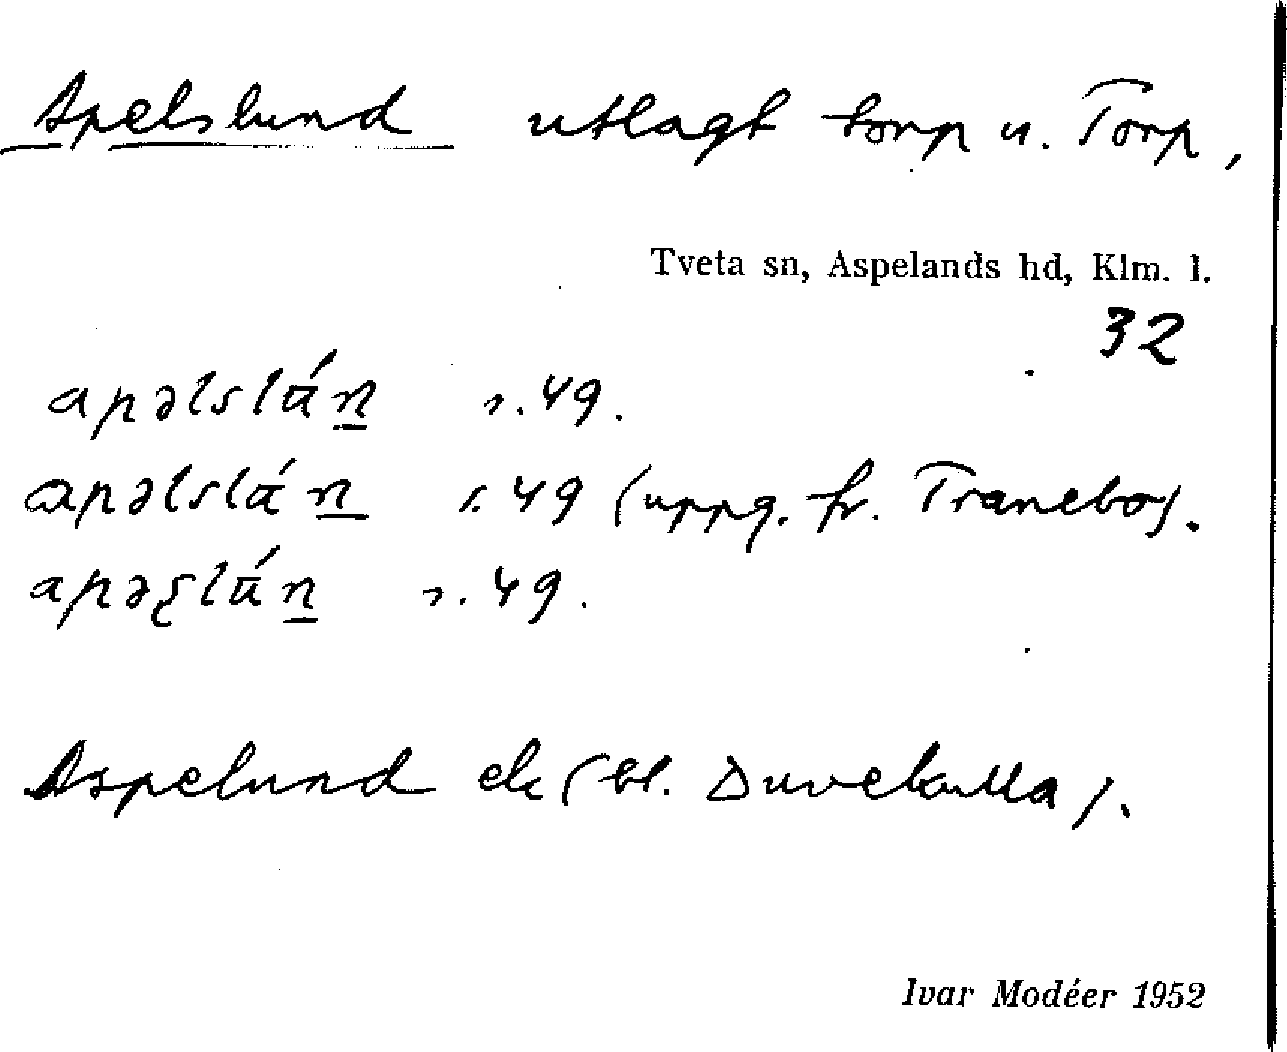 Apelslund utlagt torp u. Torp,
Tveta sn, Aspelands hd, Klm. l.
32
apəlslú̄n s.49.
apəlslú̄n s.49 (uppg. fr. Tranebo).
apəʂlú̄n s.49.
Aspelund ek (bl. Duvekulla).
Ivar Modéer 1952